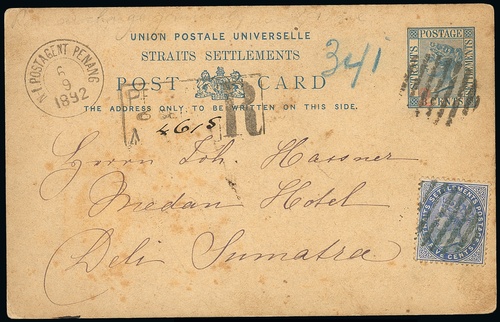 UNION POSTALE UNIVERSELLE
STRAITS SETTLEMENTS
POST CARD
THE ADDRESS ONLY TO BE WRITTEN ON THIS SIDE.
341
N.I. POSTAGENT PENANG
6
9
1892
STRAITS SETTLEMENTS
POSTAGE
CENTS
R
4615
Herrn Joh. Hassner
Medan Hotel
Deli Sumatra
STRAITS SETTLEMENTS POSTAGE
CENTS